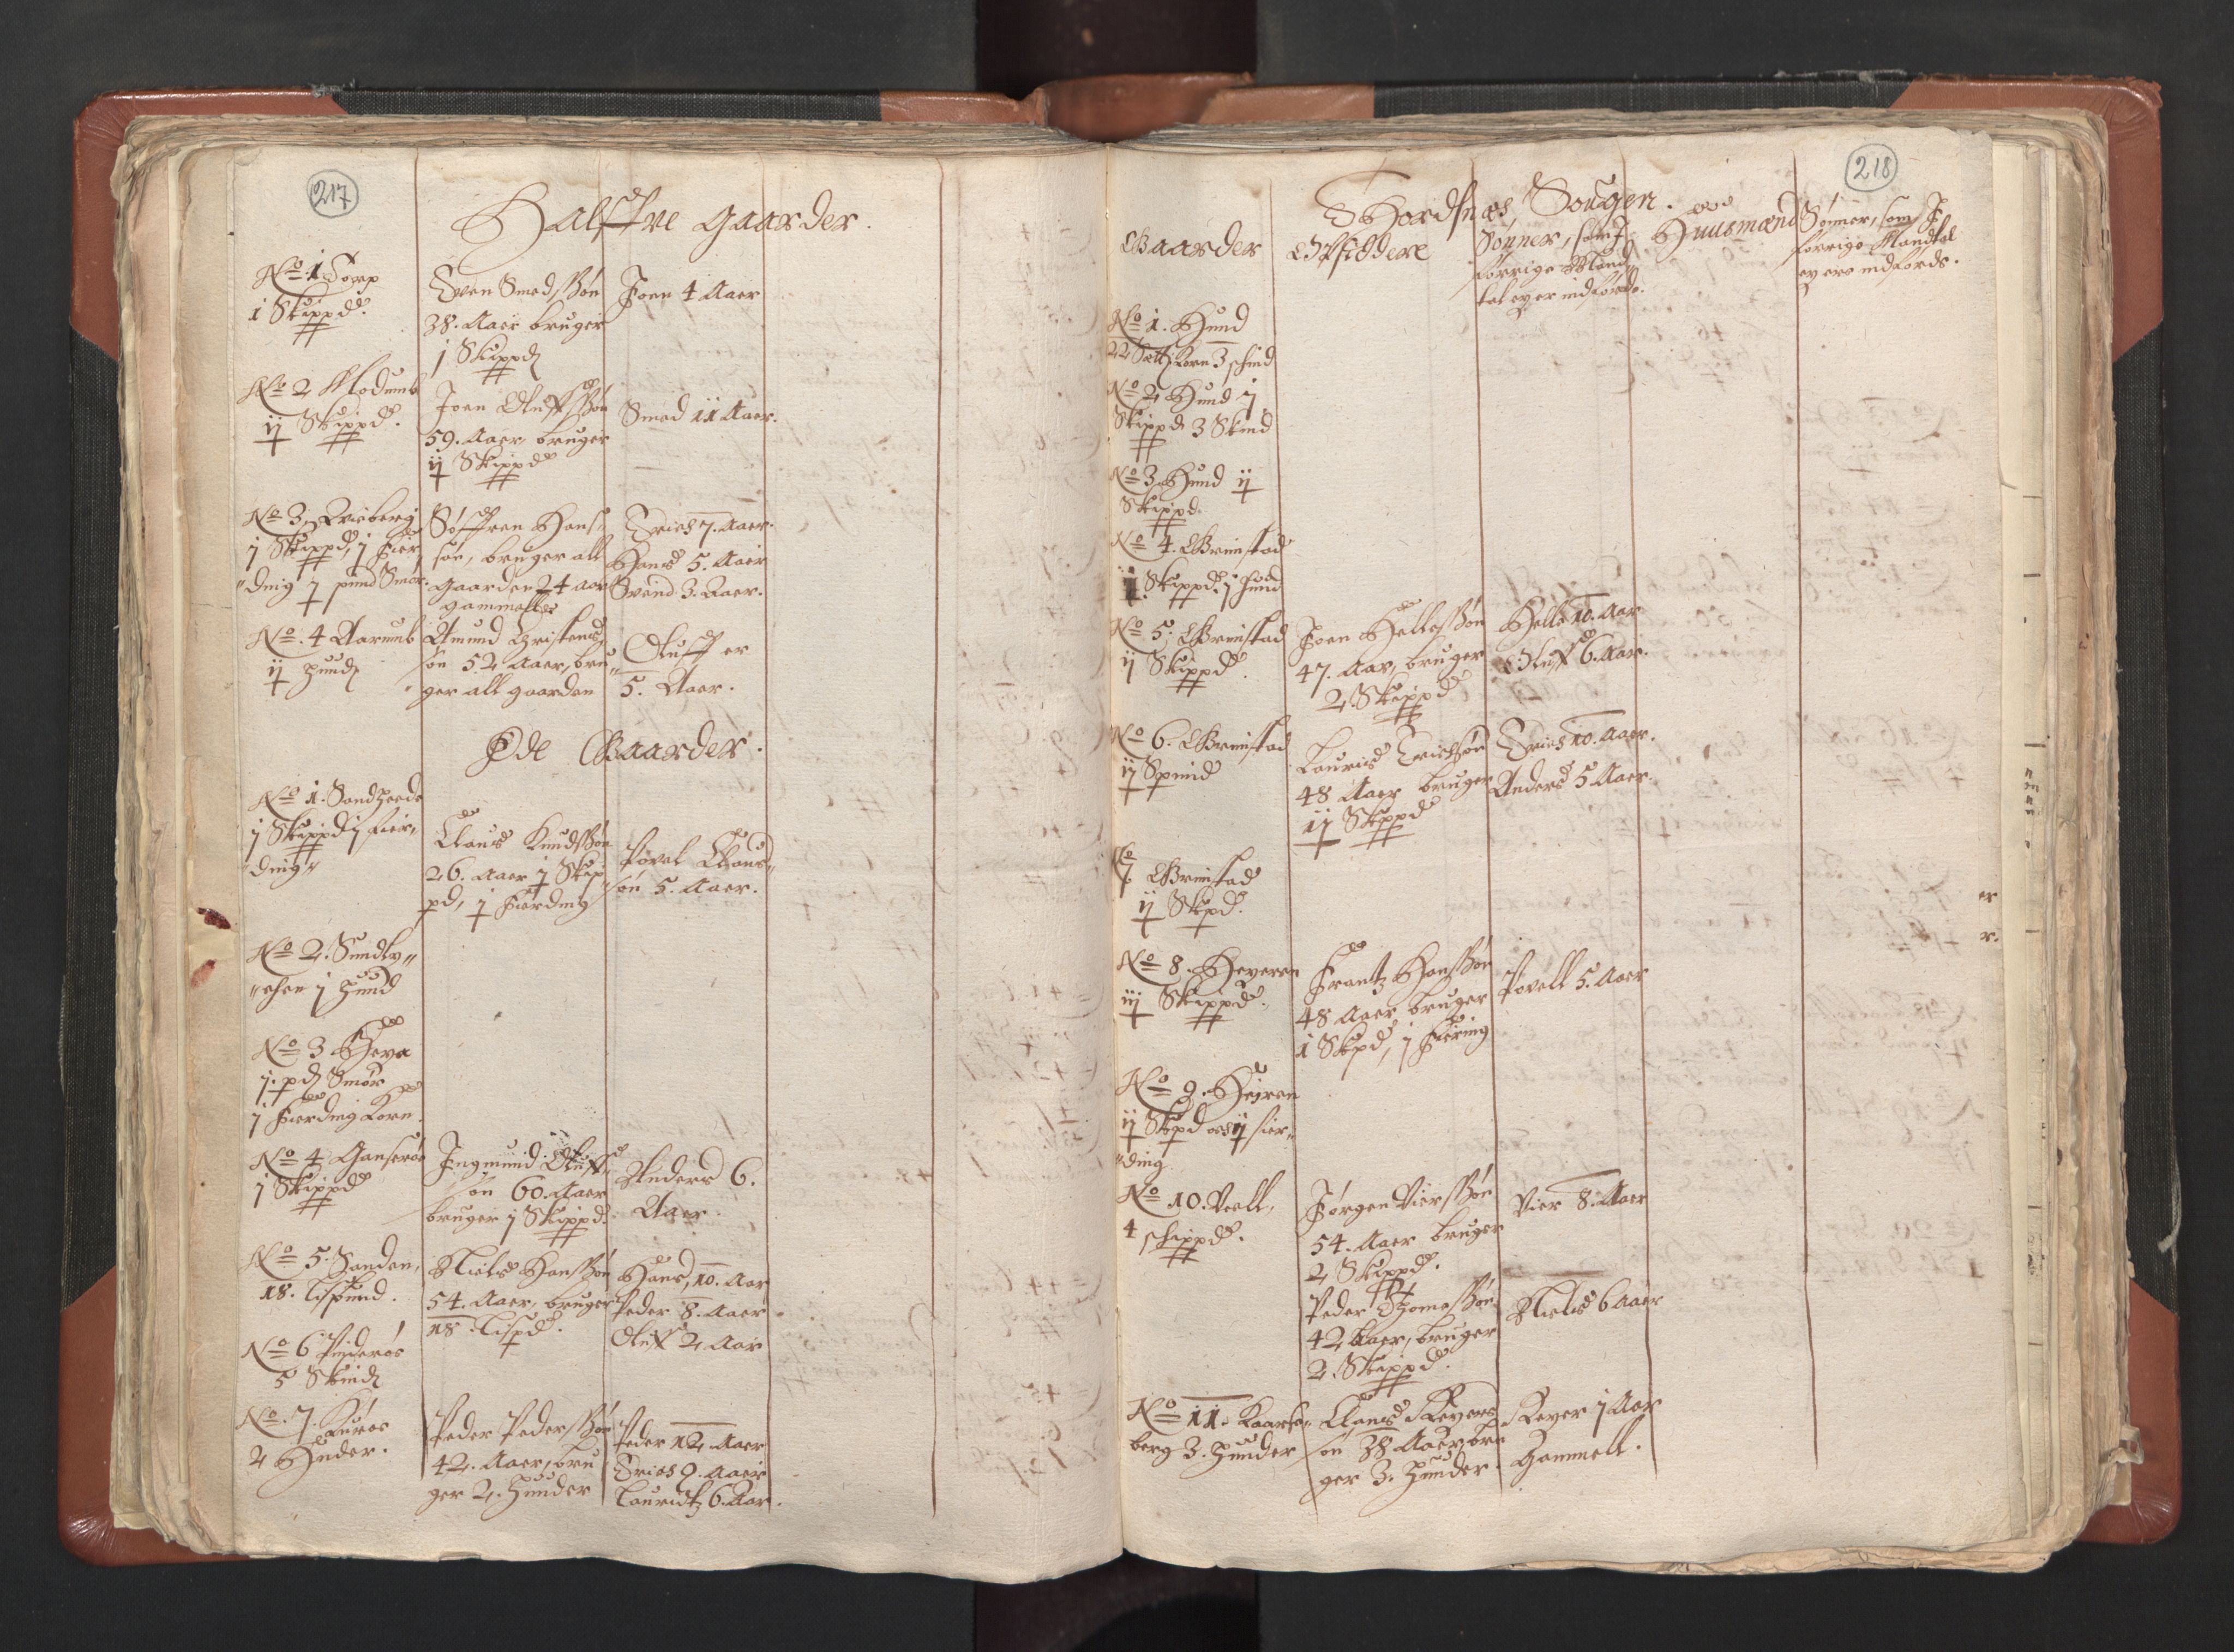 217
Halffve gaarder.
No. 1. Torp
1 Skippd.
Swen Smedssøn
38. Aaer bruger
j Skippd
Joen 4 Aaer
No 2
ij Skippd.
Joen Oluffssøn
59. Aaer, bruger
ij Skippd
Smed 11 Aaer.
No 3.
j Skippd, j Fier
ding j pund Smør.
Søffren Hans
søn, bruger all
gaarden 24 aar
gammell
Erich 7. Aaer.
Hans 5. Aaer
Svend 3. Aaer.
No. 4 Aarumb
ij hund
Amund Christens
søn 52 Aaer, bru
ger all gaarden
Oluff er
5. Aaer.
Øde Gaarder.
No 1. Sandheede
j Skippd j Fier
ding
Claus Knudssøn
26. Aaer j Skip
pd, j Fierding
Povel Claus
søn 5. Aaer.
No 2. Sundby
ehen j hund
No 3 Heva
j. pd Smør
j Fierding Korn.
No 4 Ganserøe
j Skippd
Ingmund Oluff
søn 60. Aaer
bruger j Skippd.
Anders 6.
Aaer.
No 5. Sanden,
18. Lispund.
Niels Hanssøn
54. Aaer, bruger
18. Lispd.
Hans, 10. Aar
Peder 8. Aaer
Oluff 2. Aar
No 6
5 Skind
No. 7.
2 Huder.
Peder Pederssøn
42. Aaer, bru
ger 2. Hunder
Peder 12 Aaer
Erich 9. Aaer
Lauridtz 6. Aar.
218
Thordsnæs Sougen.
Gaarder
Opsiddere
Sønner, som J
forrige Mand
tal ey er indførde.
Huusmænd
Sønner, som J
forrige Mandtal
ey ere indførde.
No 1. Hund
22 Sett. Korn 3 schind
No 2 Hund j
Skippd 3 Skind
No 3 Hund ij
Skippd.
No 4. Grimstad
Skippd. j hund
No 5. Grimstad
ij Skippd.
Joen Hellessøn
47. Aar, bruger
2 Skippd
Helle 10. Aar
Oluff 6. Aar.
No 6. Grimstad
ij Spund
Lauris Erichsøn
48 Aaer bruger
ij Skippd
Erich 10. Aaer.
Anders 5 Aaer.
No
7 Grimstad
ij Skpd.
No 8. Heyeren
iij Skippd.
Frantz Hanssøn
48 Aaer bruger
1 Skpd, j Fiering
Povell 5. Aaer
No 9. Heiren
ij Skpd och ij fier
ding
No 10. Vell,
4 schippd.
Jørgen Vierssøn
54. Aaer bruger
2 Skippd.
Vier 8. Aaer
Peder Thomessøn
42 Aaer, bruger
2. Skippd.
Niels 6 Aaer
No 11. Kaarse
berg 3. Hunder
Claus Revers
søn 38 Aaer, bru
ger 3. Hunder.
Rever j Aar
Gammell.